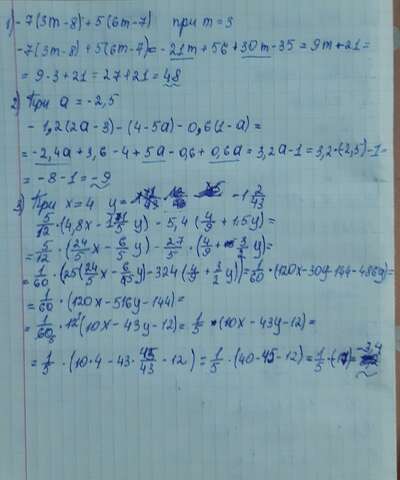 1) -7(3m-8)+5(6m-7) при m=3
-7(3m-8)+5(6m-7)=-21m+56+30m-35=9m+21=
=9·3+21=27+21=48
2) При a=-2,5
-1,2(2a-3)-(4-5a)-0,6(1-a)=
=-2,4a+3,6-4+5a-0,6+0,6a=3,2a-1=3,2·(-2,5)-1=
=-8-1=-9
3) При x=4 y= -1 2/43
5/12·(4,8x- y)-5,4(y/9+1,5y)=
=5/12·(24/5x-6/5y)-27/5·(4/9+3/2y)=
=1/60·(25(24/5x-6/5y)-324(4/9+3/2y))=1/60·(120x-30y-144-486y)=
=1/60·(120x-516y-144)=
=1/60·12(10x-43y-12)=1/5·(10x-43y-12)=
=1/5·(10·4-43·45/43-12)=1/5·(40-45-12)=1/5· = -3,4